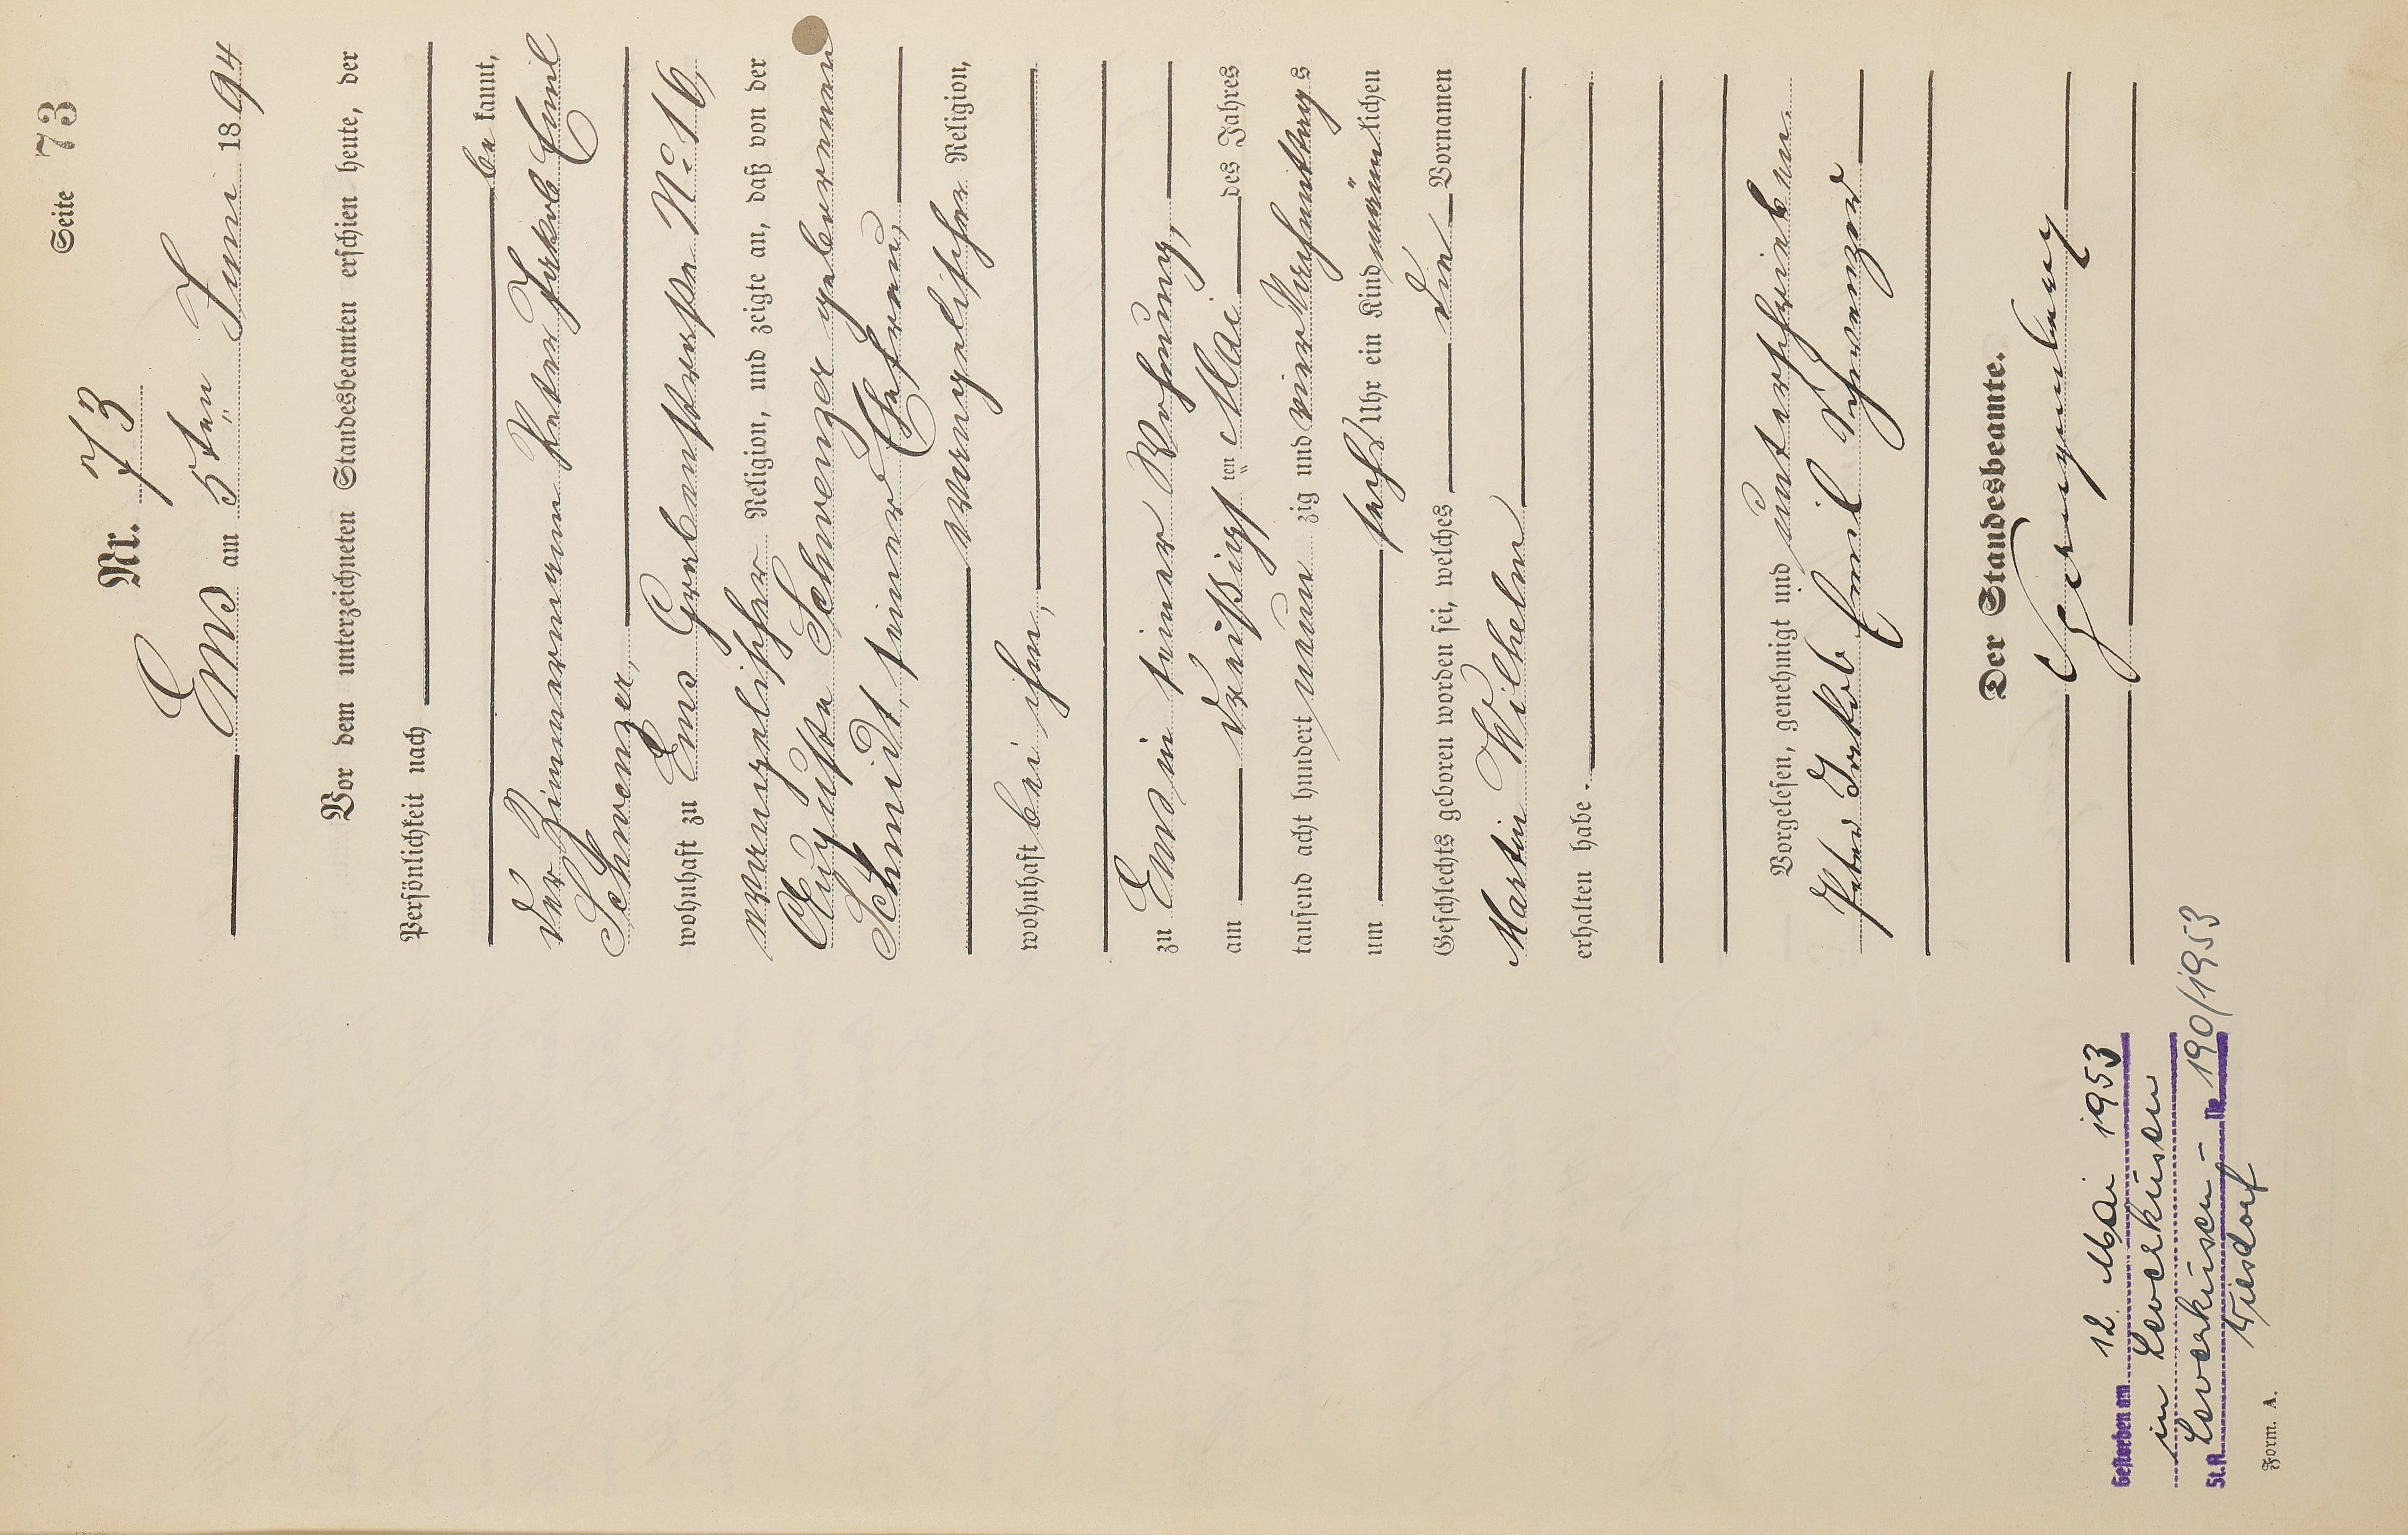 Seite 73
Nr. 73
Ems am 5ten Juni 1894
Vor dem unterzeichneten Standesbeamten erschien heute, der
Persönlichkeit nach
bekannt,
der Zimmermann Peter Jakob Emil
Schwenzer,
wohnhaft zu Ems Grabenstraße No 16,
evangelischer Religion, und zeigte an, daß von der
Auguste Schwenzer geborenen
Schmidt, seiner Ehefrau,
evangelischer Religion,
wohnhaft bei ihm,
zu Ems in seiner Wohnung,
am dreißigsten Mai des Jahres
tausend acht hundert neunzig und vier Nachmittags
um sechs Uhr ein Kind männlichen
Geschlechts geboren worden sei, welches die Vornamen
Martin Wilhelm
erhalten habe.
Vorgelesen, genehmigt und unterschrieben.
Peter Jakob Emil Schwenzer
Der Standesbeamte.
Gestorben am 12. Mai 1953
in Leverkusen
St.A. Leverkusen- Nr. 190/1953
Wiesdorf
Form. A.